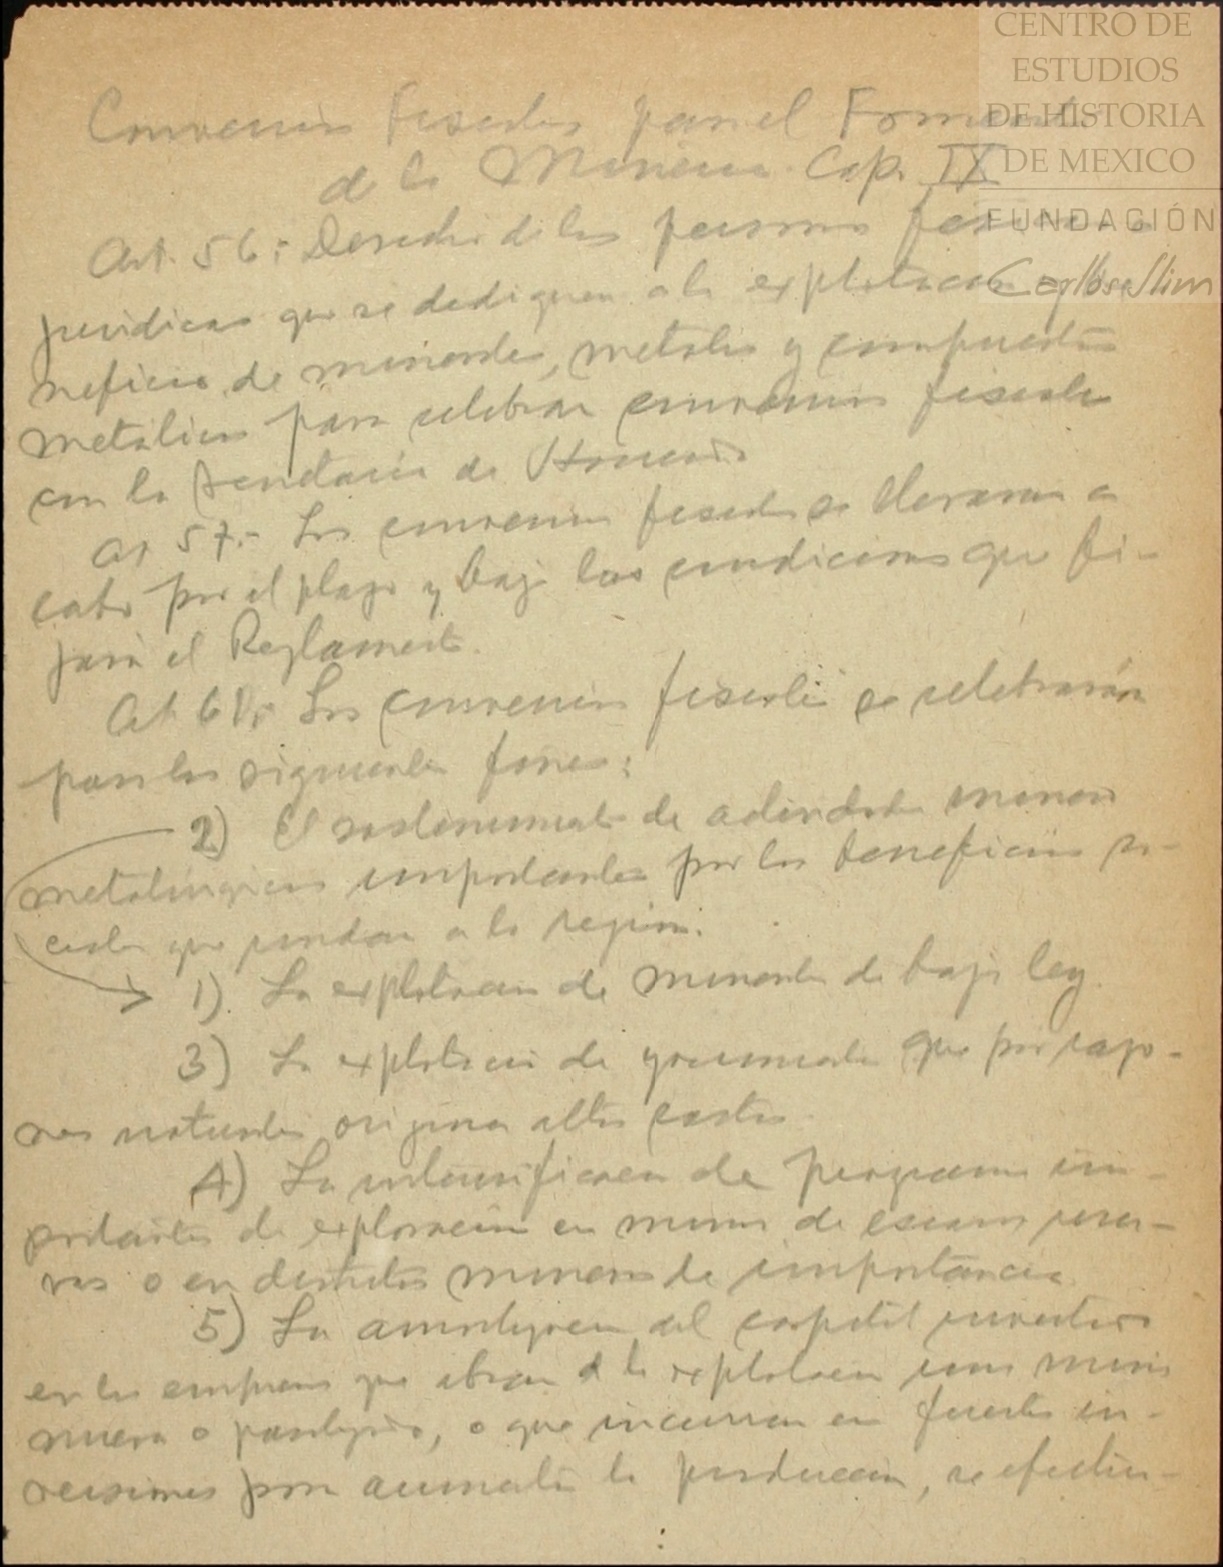 CENTRO DE
ESTUDIOS
DE HISTORIA
DE MEXICO
FUNDACIÓN
Carlos Slim
Convenios fiscales para el Fomento
de la Minería. Cap. IX
Art. 56.- Derecho de las personas físicas o
jurídicas que se dediquen a la explotación
neficio de minerales, metales y compuestos
metálicos para celebrar convenios fiscales
con la Secretaría de Hacienda
Art 57.- Los convenios fiscales se llevaran a
cabo por el plazo y bajo las condiciones que fi-
jará el Reglamento.
Art. 60.- Los convenios fiscales se celebrarán
para los siguientes fines:
2) El sostenimiento de mineros
metalúrgicos importantes por los beneficios so-
ciales que rindan a la región.
1) La explotación de minerales de baja ley.
3) La explotación de yacimientos que por razo-
nes naturales origina altos costos.
4) La intensificación de programas im-
portantes de exploración en minas de escasas reser-
vas o en distritos mineros de importancia
5) La amortización del capital invertido
en las empresas que abran a la explotación una mina
nueva o paralizada, o que incurran en fuertes in-
versiones para aumentar la producción, se efectua-